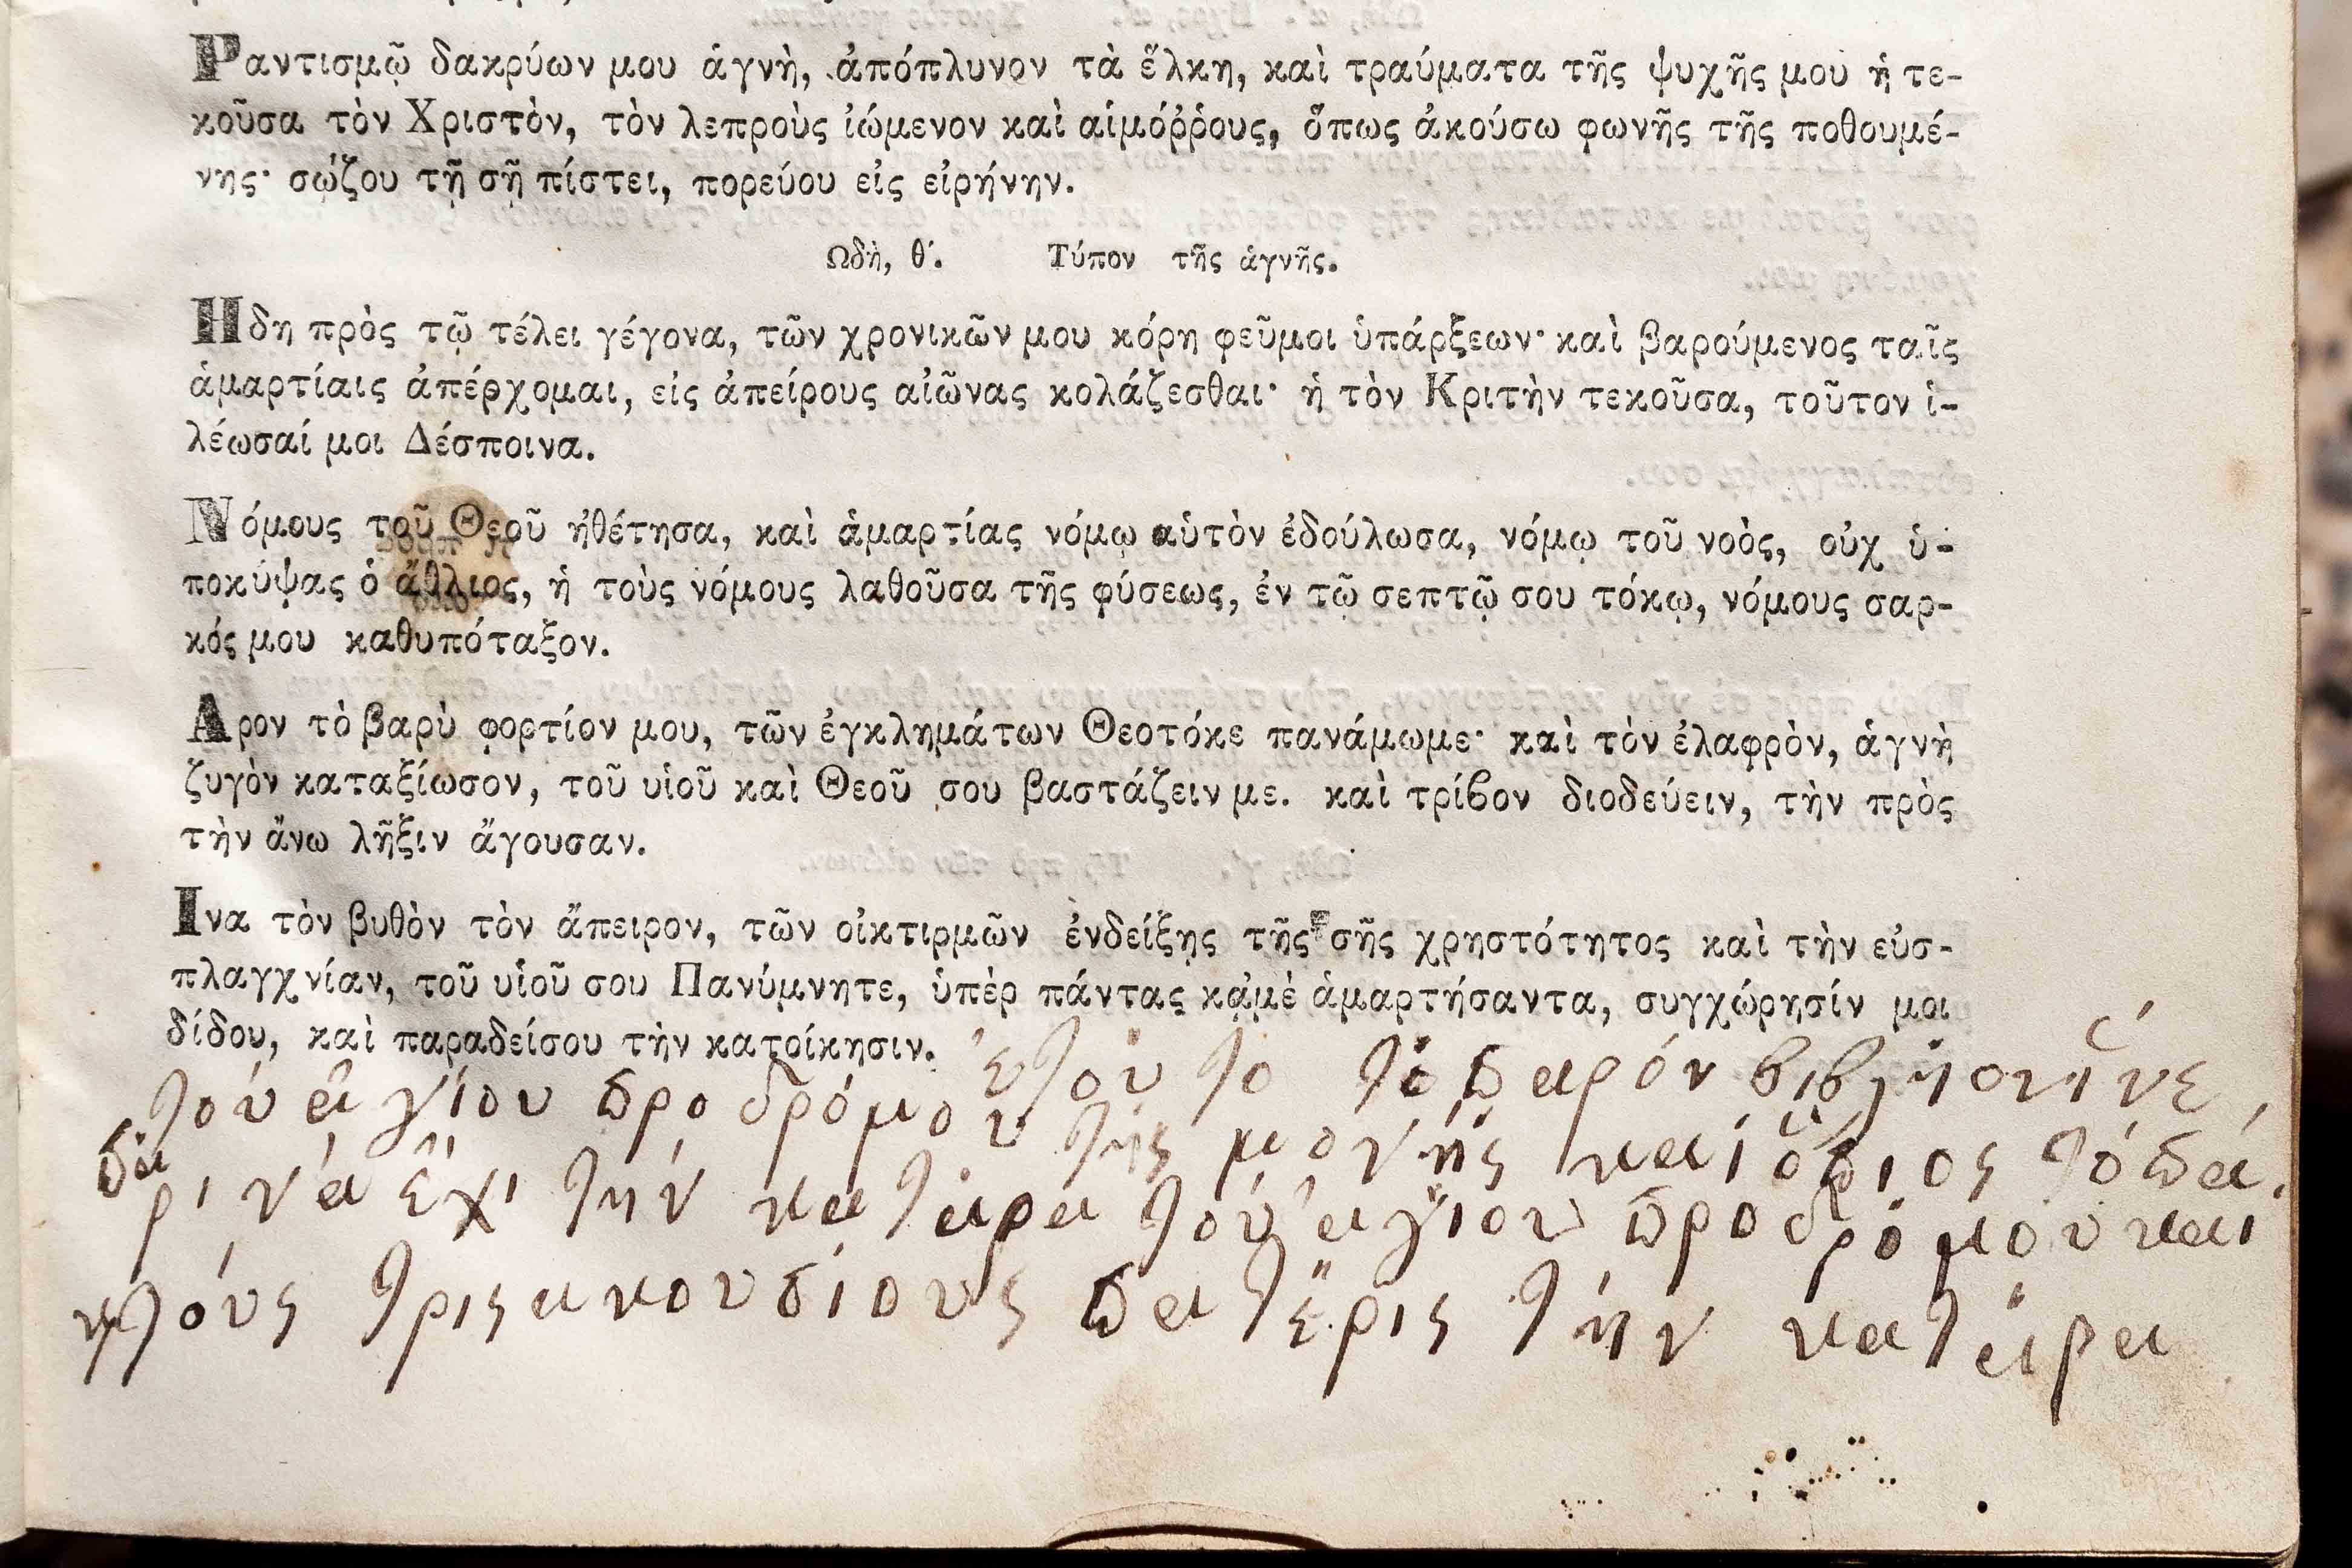 Ραντισμῷ δακρύων μου ἁγνὴ, ἀπόπλυνον τὰ ἕλκη, καὶ τραύματα τῆς ψυχῆς μου ἡ τε-
κοῦσα τὸν Χριστὸν, τὸν λεπροὺς ἰώμενον καὶ αἱμόῤῥους, ὅπως ἀκούσω φωνῆς τῆς ποθουμέ-
νης· σώζου τῇ σῇ πίστει, πορεύου εἰς εἰρήνην.
Ωδὴ, θ΄. Τύπον τῆς ἁγνῆς.
Ηδη πρὸς τῷ τέλει γέγονα, τῶν χρονικῶν μου κόρη φεῦμοι ὑπάρξεων· καὶ βαρούμενος ταῖς
ἁμαρτίαις ἀπέρχομαι, εἰς ἀπείρους αἰῶνας κολάζεσθαι· ἡ τὸν Κριτὴν τεκοῦσα, τοῦτον ἱ-
λέωσαί μοι Δέσποινα.
Νόμους τοῦ Θεοῦ ἠθέτησα, καὶ ἁμαρτίας νόμῳ αὑτὸν ἐδούλωσα, νόμῳ τοῦ νοὸς, οὐχ ὑ-
ποκύψας ὁ ἄθλιος, ἡ τοὺς νόμους λαθοῦσα τῆς φύσεως, ἐν τῷ σεπτῷ σου τόκῳ, νόμους σαρ-
κός μου καθυπόταξον.
Αρον τὸ βαρὺ φορτίον μου, τῶν ἐγκλημάτων Θεοτόκε πανάμωμε· καὶ τὸν ἐλαφρὸν, ἁγνὴ
ζυγὸν καταξίωσον, τοῦ υἱοῦ καὶ Θεοῦ σου βαστάζειν με. καὶ τρίβον διοδεύειν, τὴν πρὸς
τὴν ἄνω λῆξιν ἄγουσαν.
Ινα τὸν βυθὸν τὸν ἄπειρον, τῶν οἰκτιρμῶν ἐνδείξῃς τῆς σῆς χρηστότητος καὶ τὴν εὐσ-
πλαγχνίαν, τοῦ υἱοῦ σου Πανύμνητε, ὑπὲρ πάντας κᾀμὲ ἁμαρτήσαντα, συγχώρησίν μοι
δίδου, καὶ παραδείσου τὴν κατοίκησιν.
ἐτού το τὸ παρόν βιβλήον ἵνε
τού ἁγίου προδρόμου τῆς μονῆς καὶ ὅπιος τό πά
ρι νά ἔχι τήν κατάρα τού ἁγίου προδρόμου και
τούς τρις ακουσίους πατέρις τήν κατάρα